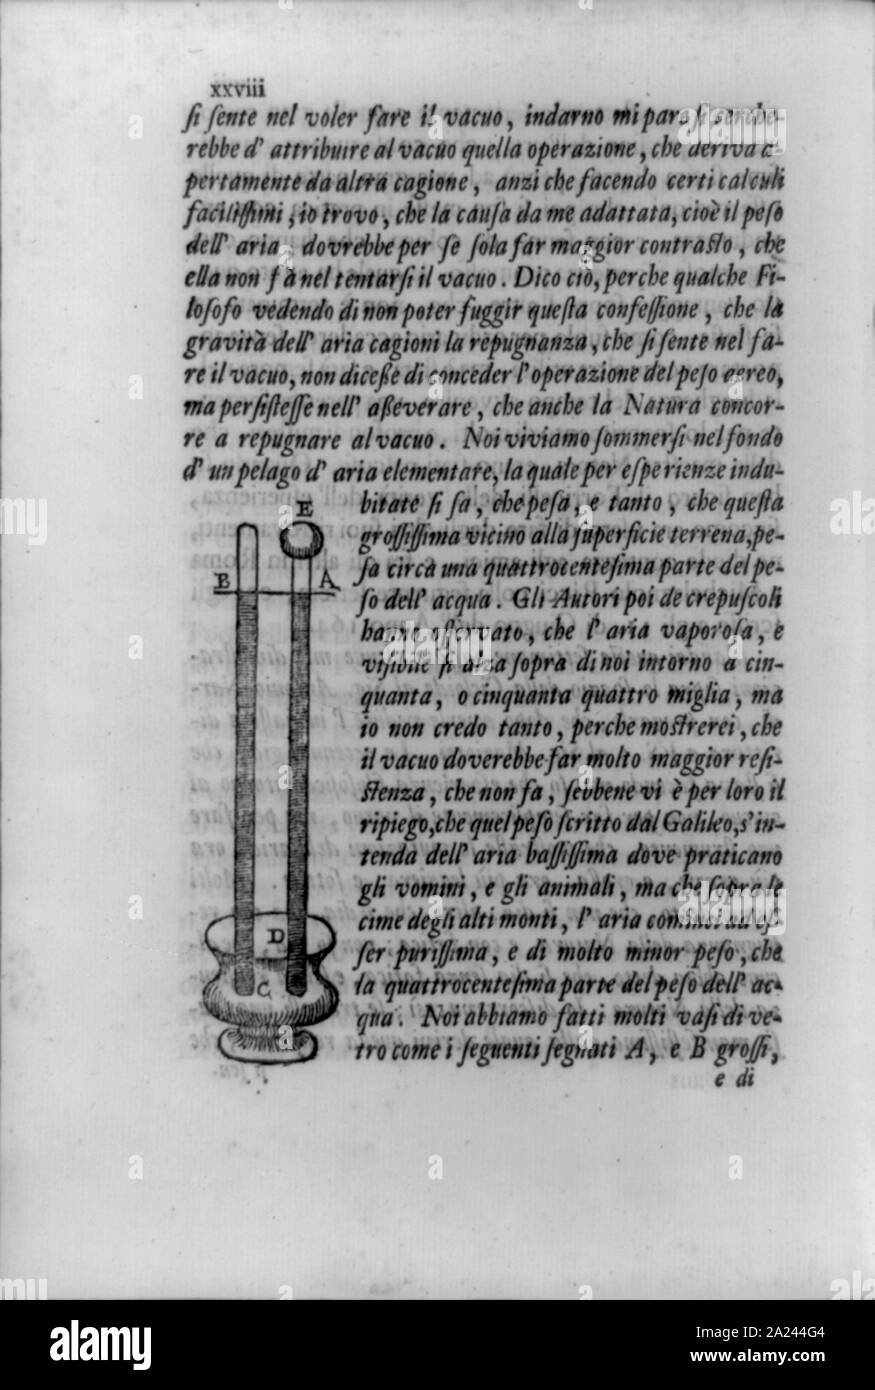 xxviii
ſi ſente nel voler fare il vacuo, indarno mi pare ſi cerche-
rebbe d' attribuire al vacuo quella operazione, che deriva a-
pertamente da altra cagione, anzi che facendo certi calculi
faciliſſimi, io trovo, che la cauſa da me adattata, cioè il peſo
dell' aria, dovrebbe per ſe ſola far maggior contraſto, che
ella non fà nel tentarſi il vacuo. Dico ciò, perche qualche Fi-
loſofo vedendo di non poter fuggir queſta confeſſione, che la
gravità dell' aria cagioni la repugnanza, che ſi ſente nel fa-
re il vacuo, non diceſſe di conceder l' operazione del peſo aereo,
ma perſiſteſſe nell' aſſeverare, che anche la Natura concor-
re a repugnare al vacuo. Noi viviamo ſommerſi nel fondo
d' un pelago d' aria elementare, la quale per eſperienze indu-
bitate ſi ſa, che peſa, e tanto, che queſta
groſſiſſima vicino alla ſuperficie terrena, pe-
ſa circa una quattrocenteſima parte del pe-
ſo dell' acqua. Gli Autori poi de crepuſcoli
hanno oſſervato, che l' aria vaporoſa, e
viſibile ſi alza ſopra di noi intorno a cin-
quanta, o cinquanta quattro miglia, ma
io non credo tanto, perche moſtrerei, che
il vacuo doverebbe far molto maggior reſi-
ſtenza, che non fa, ſebbene vi è per loro il
ripiego, che quel peſo ſcritto dal Galileo, s' in-
tenda dell' aria baſſiſſima dove praticano
gli vomini, e gli animali, ma che ſopra le
cime degli alti monti, l' aria cominci ad eſ-
ſer puriſſima, e di molto minor peſo, che
la quattrocenteſima parte del peſo dell' ac-
qua. Noi abbiamo fatti molti vaſi di ve-
tro come i ſeguenti ſegnati A, e B groſſi,
e di
E
B A
D
C
alamy
Image ID: 2A244G4
www.alamy.com